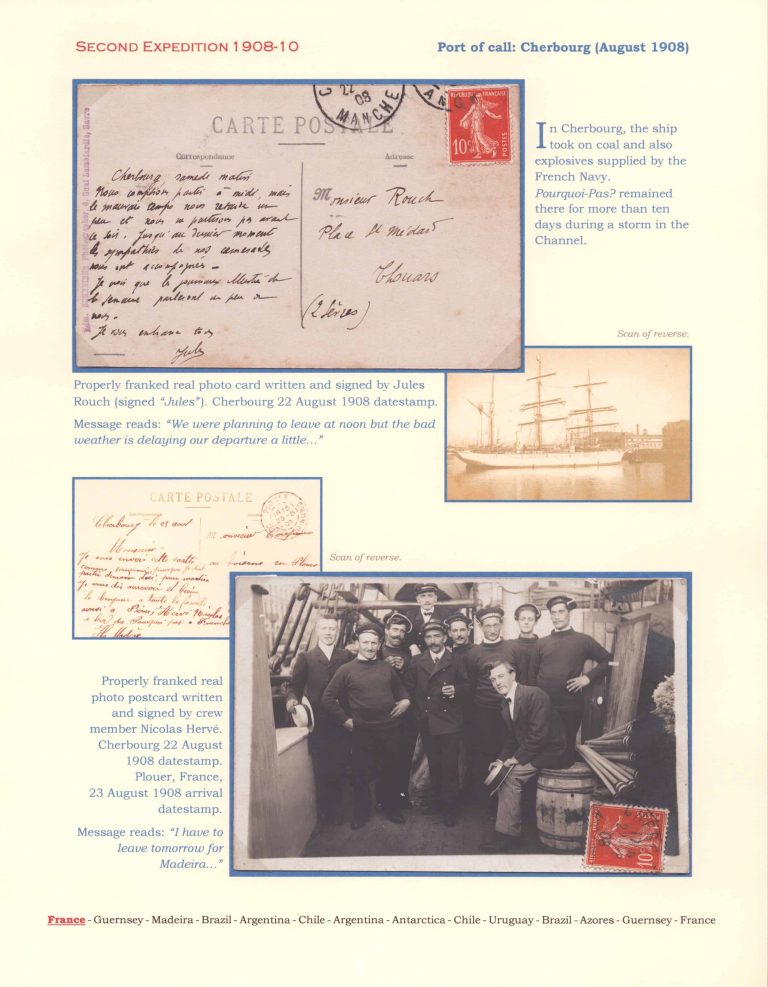 SECOND EXPEDITION 1908-10
Port of call: Cherbourg (August 1908)
22
08
MANCHE
CARTE POSTALE
RÉPUBLIQUE FRANÇAISE
10c
POSTES
Correspondance
Adresse
Cherbourg samedi matin
Nous comptions partir à midi, mais
le mauvais temps nous retarde un
peu et nous ne partirons pas avant
ce soir. Jusqu'au dernier moment
les sympathies de nos camarades
nous ont accompagnés
Je crois que les journaux illustrés de
la semaine parleront un peu de
nous.
Jules
Monsieur Rouch
Place St Médard
Thouars
(2 Sèvres)
In Cherbourg, the ship
took on coal and also
explosives supplied by the
French Navy.
Pourquoi-Pas? remained
there for more than ten
days during a storm in the
Channel.
Scan of reverse.
Properly franked real photo card written and signed by Jules
Rouch (signed “Jules”). Cherbourg 22 August 1908 datestamp.
Message reads: “We were planning to leave at noon but the bad
weather is delaying our departure a little…”
CARTE POSTALE
Cherbourg le
Monsieur
Scan of reverse.
Properly franked real
photo postcard written
and signed by crew
member Nicolas Hervé.
Cherbourg 22 August
1908 datestamp.
Plouer, France,
23 August 1908 arrival
datestamp.
Message reads: “I have to
leave tomorrow for
Madeira…”
10c
France - Guernsey - Madeira - Brazil - Argentina - Chile - Argentina - Antarctica - Chile - Uruguay - Brazil - Azores - Guernsey - France